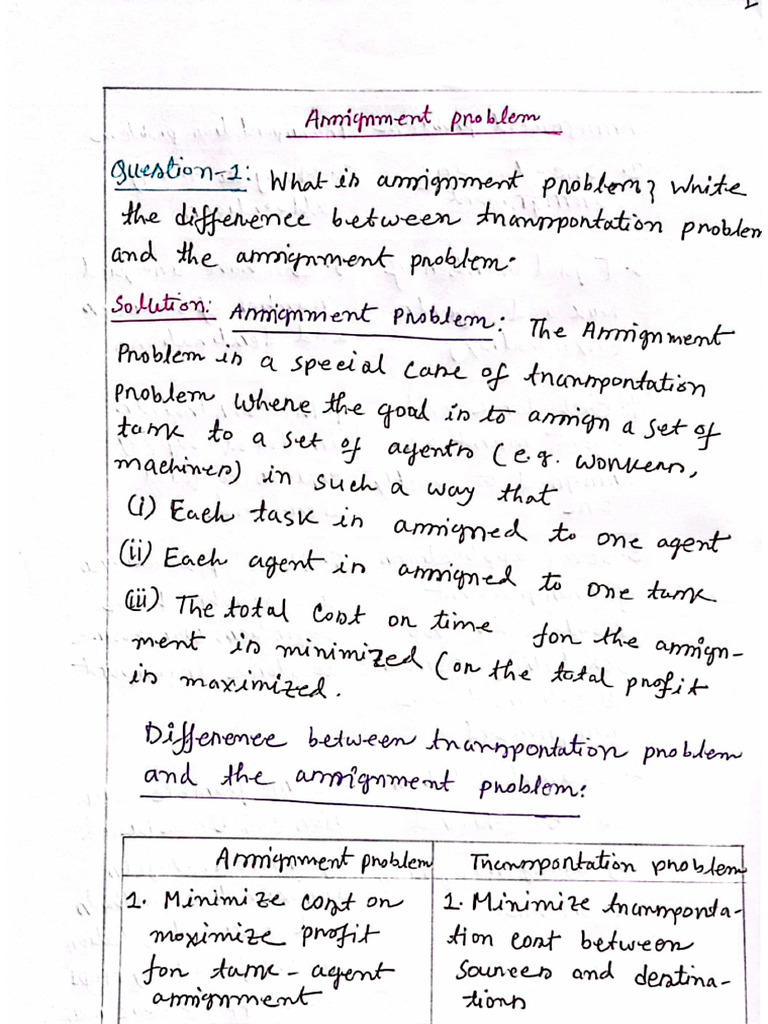 Assignment problem
Question-1: What is assignment problem? Write
the difference between transportation problem
and the assignment problem.
Solution: Assignment Problem: The Assignment
Problem is a special case of transportation
Problem where the goal is to assign a set of
task to a set of agents (e.g. workers,
machines) in such a way that
(i) Each task is assigned to one agent
(ii) Each agent is assigned to one task
(iii) The total cost or time for the assign-
ment is minimized (or the total profit
is maximized.
Difference between transportation problem
and the assignment problem:
Assignment problem
1. Minimize cost or
moximize profit
for task - agent
assignment
Transportation problem
1. Minimize transporta-
tion cost between
sources and destina-
tions